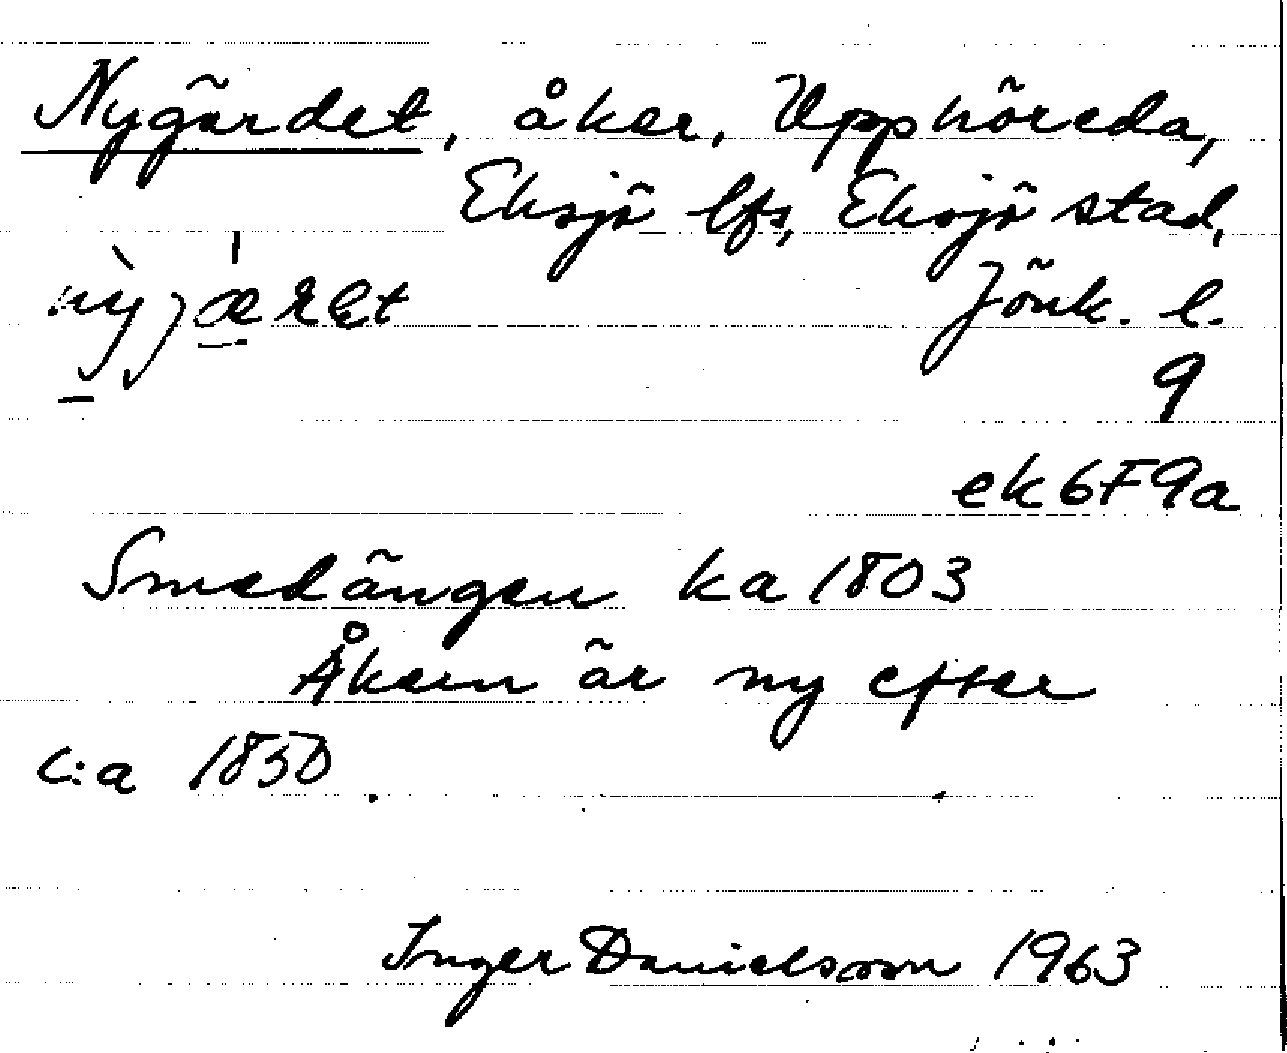 Nygärdet, åker, Upphöreda,
Eksjö lfs, Eksjö stad,
nỳjæ̱ret Jönk. l.
9
ek6F9a
Smedängen ka 1803
Åkern är ny efter
c:a 1850.
Inger Danielsson 1963